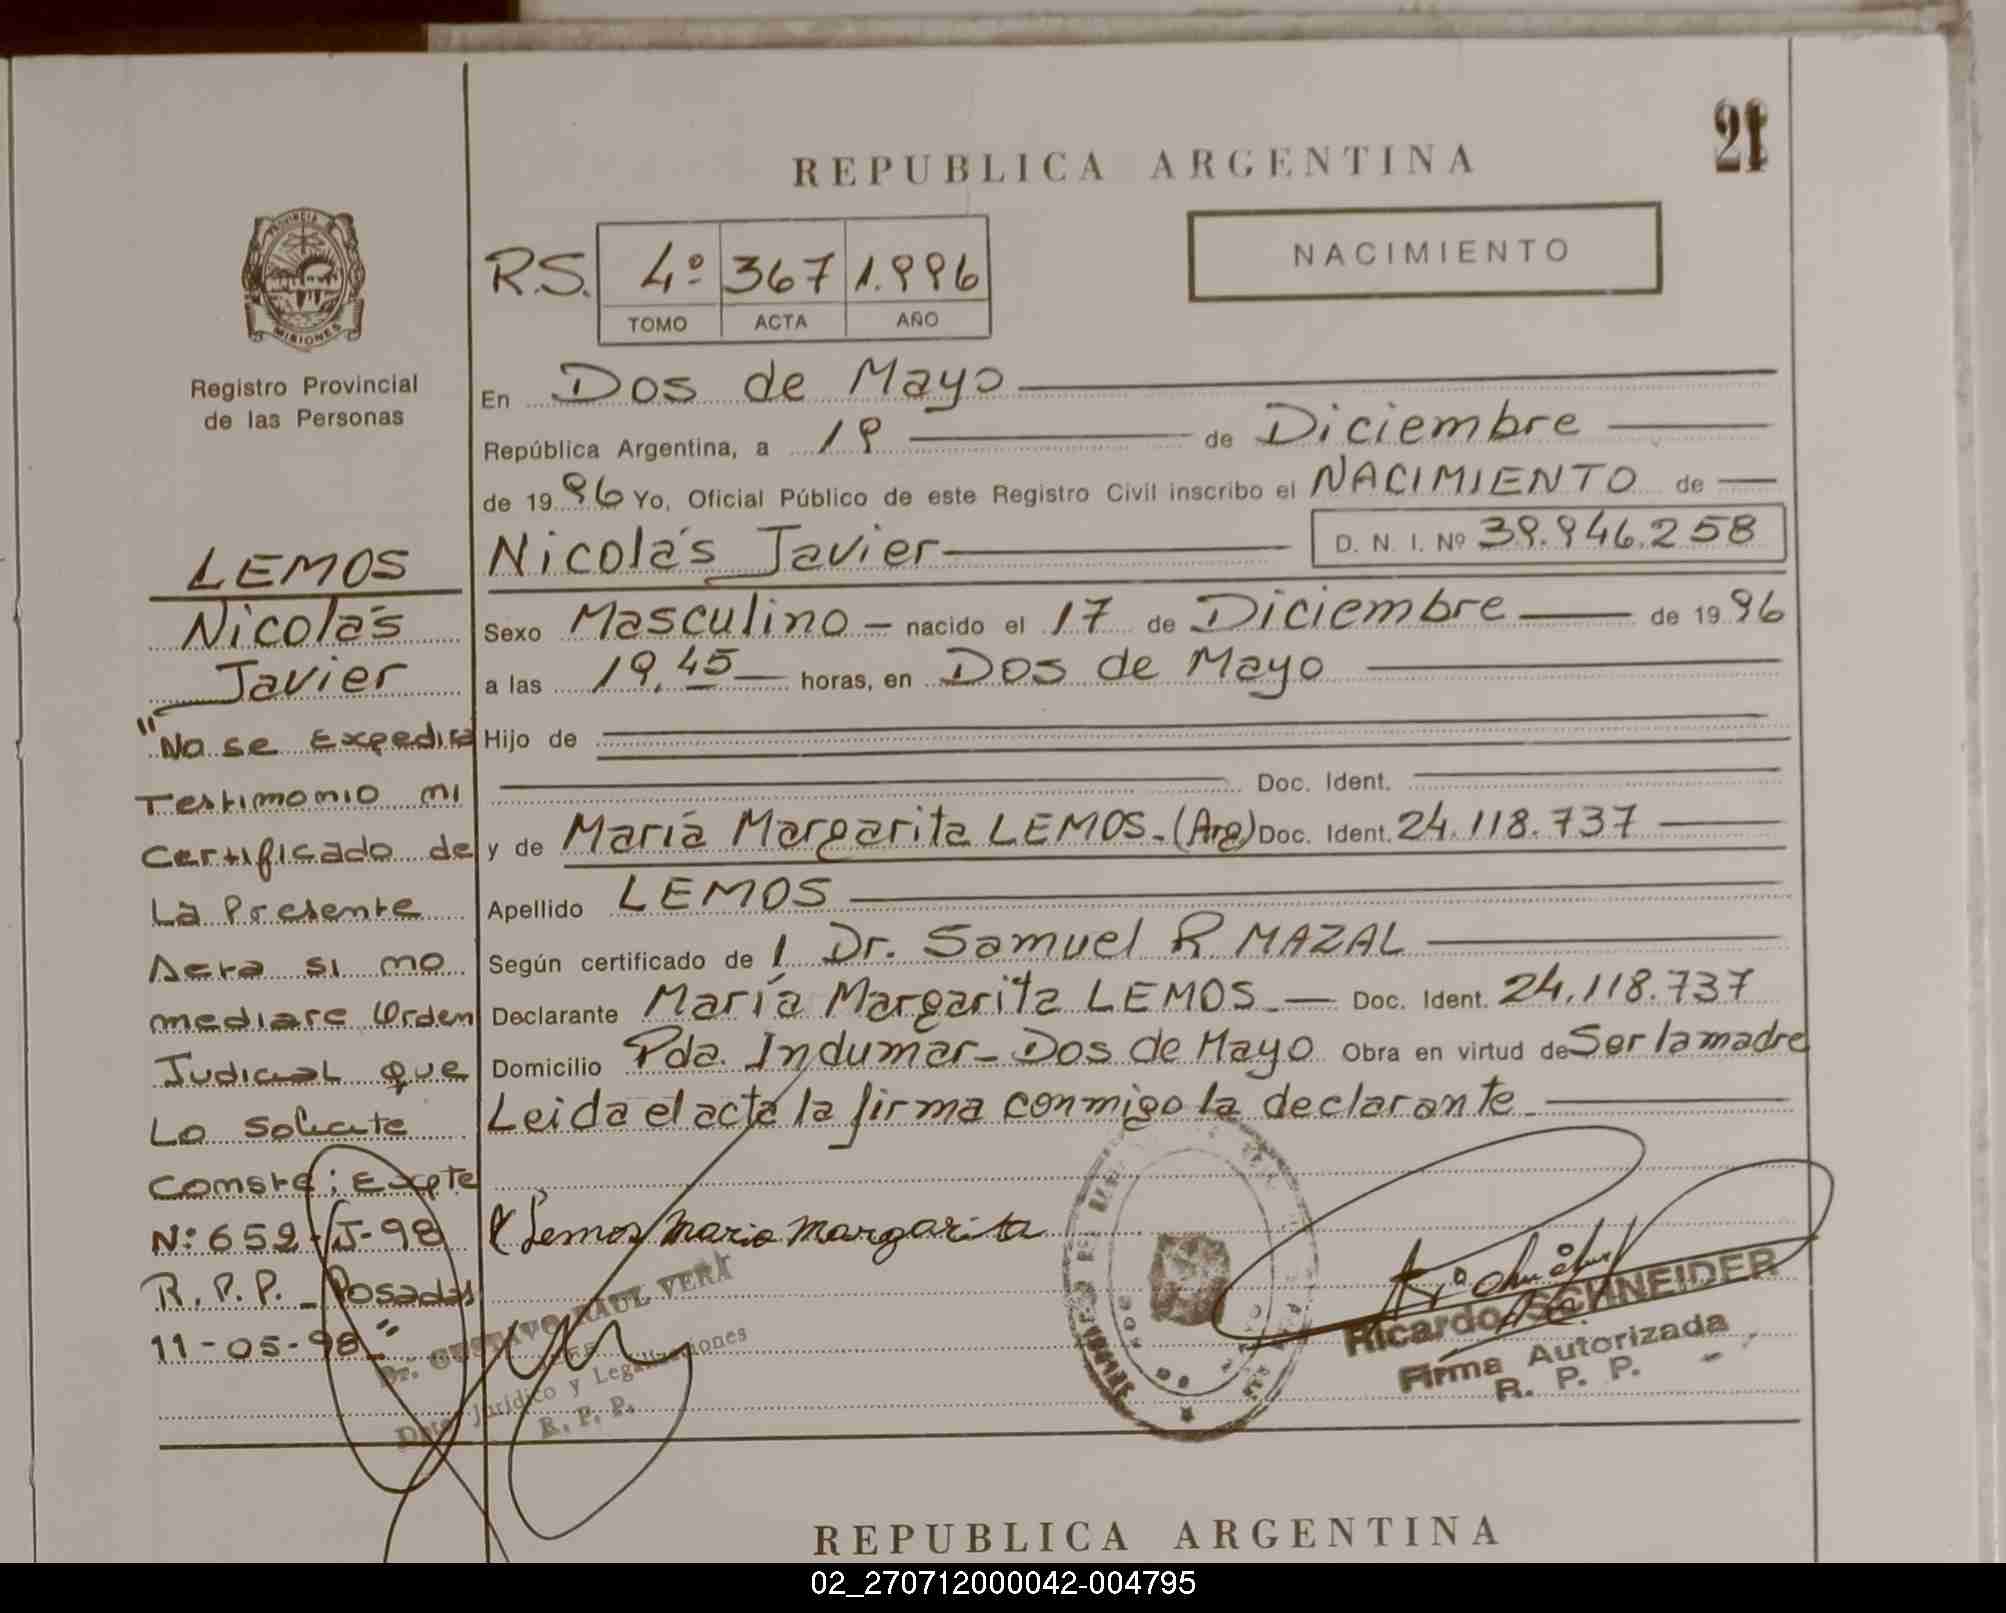 21
REPUBLICA ARGENTINA
PROVINCIA
MISIONES
Registro Provincial
de las Personas
R.S. 4º 367 1.996
TOMO ACTA AÑO
NACIMIENTO
En Dos de Mayo
República Argentina, a 19 de Diciembre
de 1996 Yo, Oficial Público de este Registro Civil inscribo el NACIMIENTO de
Nicolás Javier D. N. I. Nº 39.946.258
Sexo Masculino - nacido el 17 de Diciembre de 1996
a las 19,45 horas, en Dos de Mayo
Hijo de
Doc. Ident.
y de María Margarita LEMOS.(Arg) Doc. Ident. 24.118.737
Apellido LEMOS
Según certificado de l Dr. Samuel R. MAZAL
Declarante María Margarita LEMOS. Doc. Ident. 24.118.737
Domicilio Pda. Indumar - Dos de Mayo Obra en virtud de Ser la madre
Leida el acta la firma conmigo la declarante
Lemos Maria Margarita
LEMOS
Nicolás
Javier
"No se Expedirá
Testimonio ni
Certificado de
La Presente
Acta si no
mediare Orden
Judicial que
Lo Solicite
Conste: Expte
Nº: 659-J-98
R.P.P. - Posadas
11-05-98"
Dr. GUSTAVO RAUL VERA
Dpto. Jurídico y Legalizaciones
R. P. P.
Ricardo SCHNEIDER
Firma Autorizada
R. P. P.
REPUBLICA ARGENTINA
02_270712000042-004795